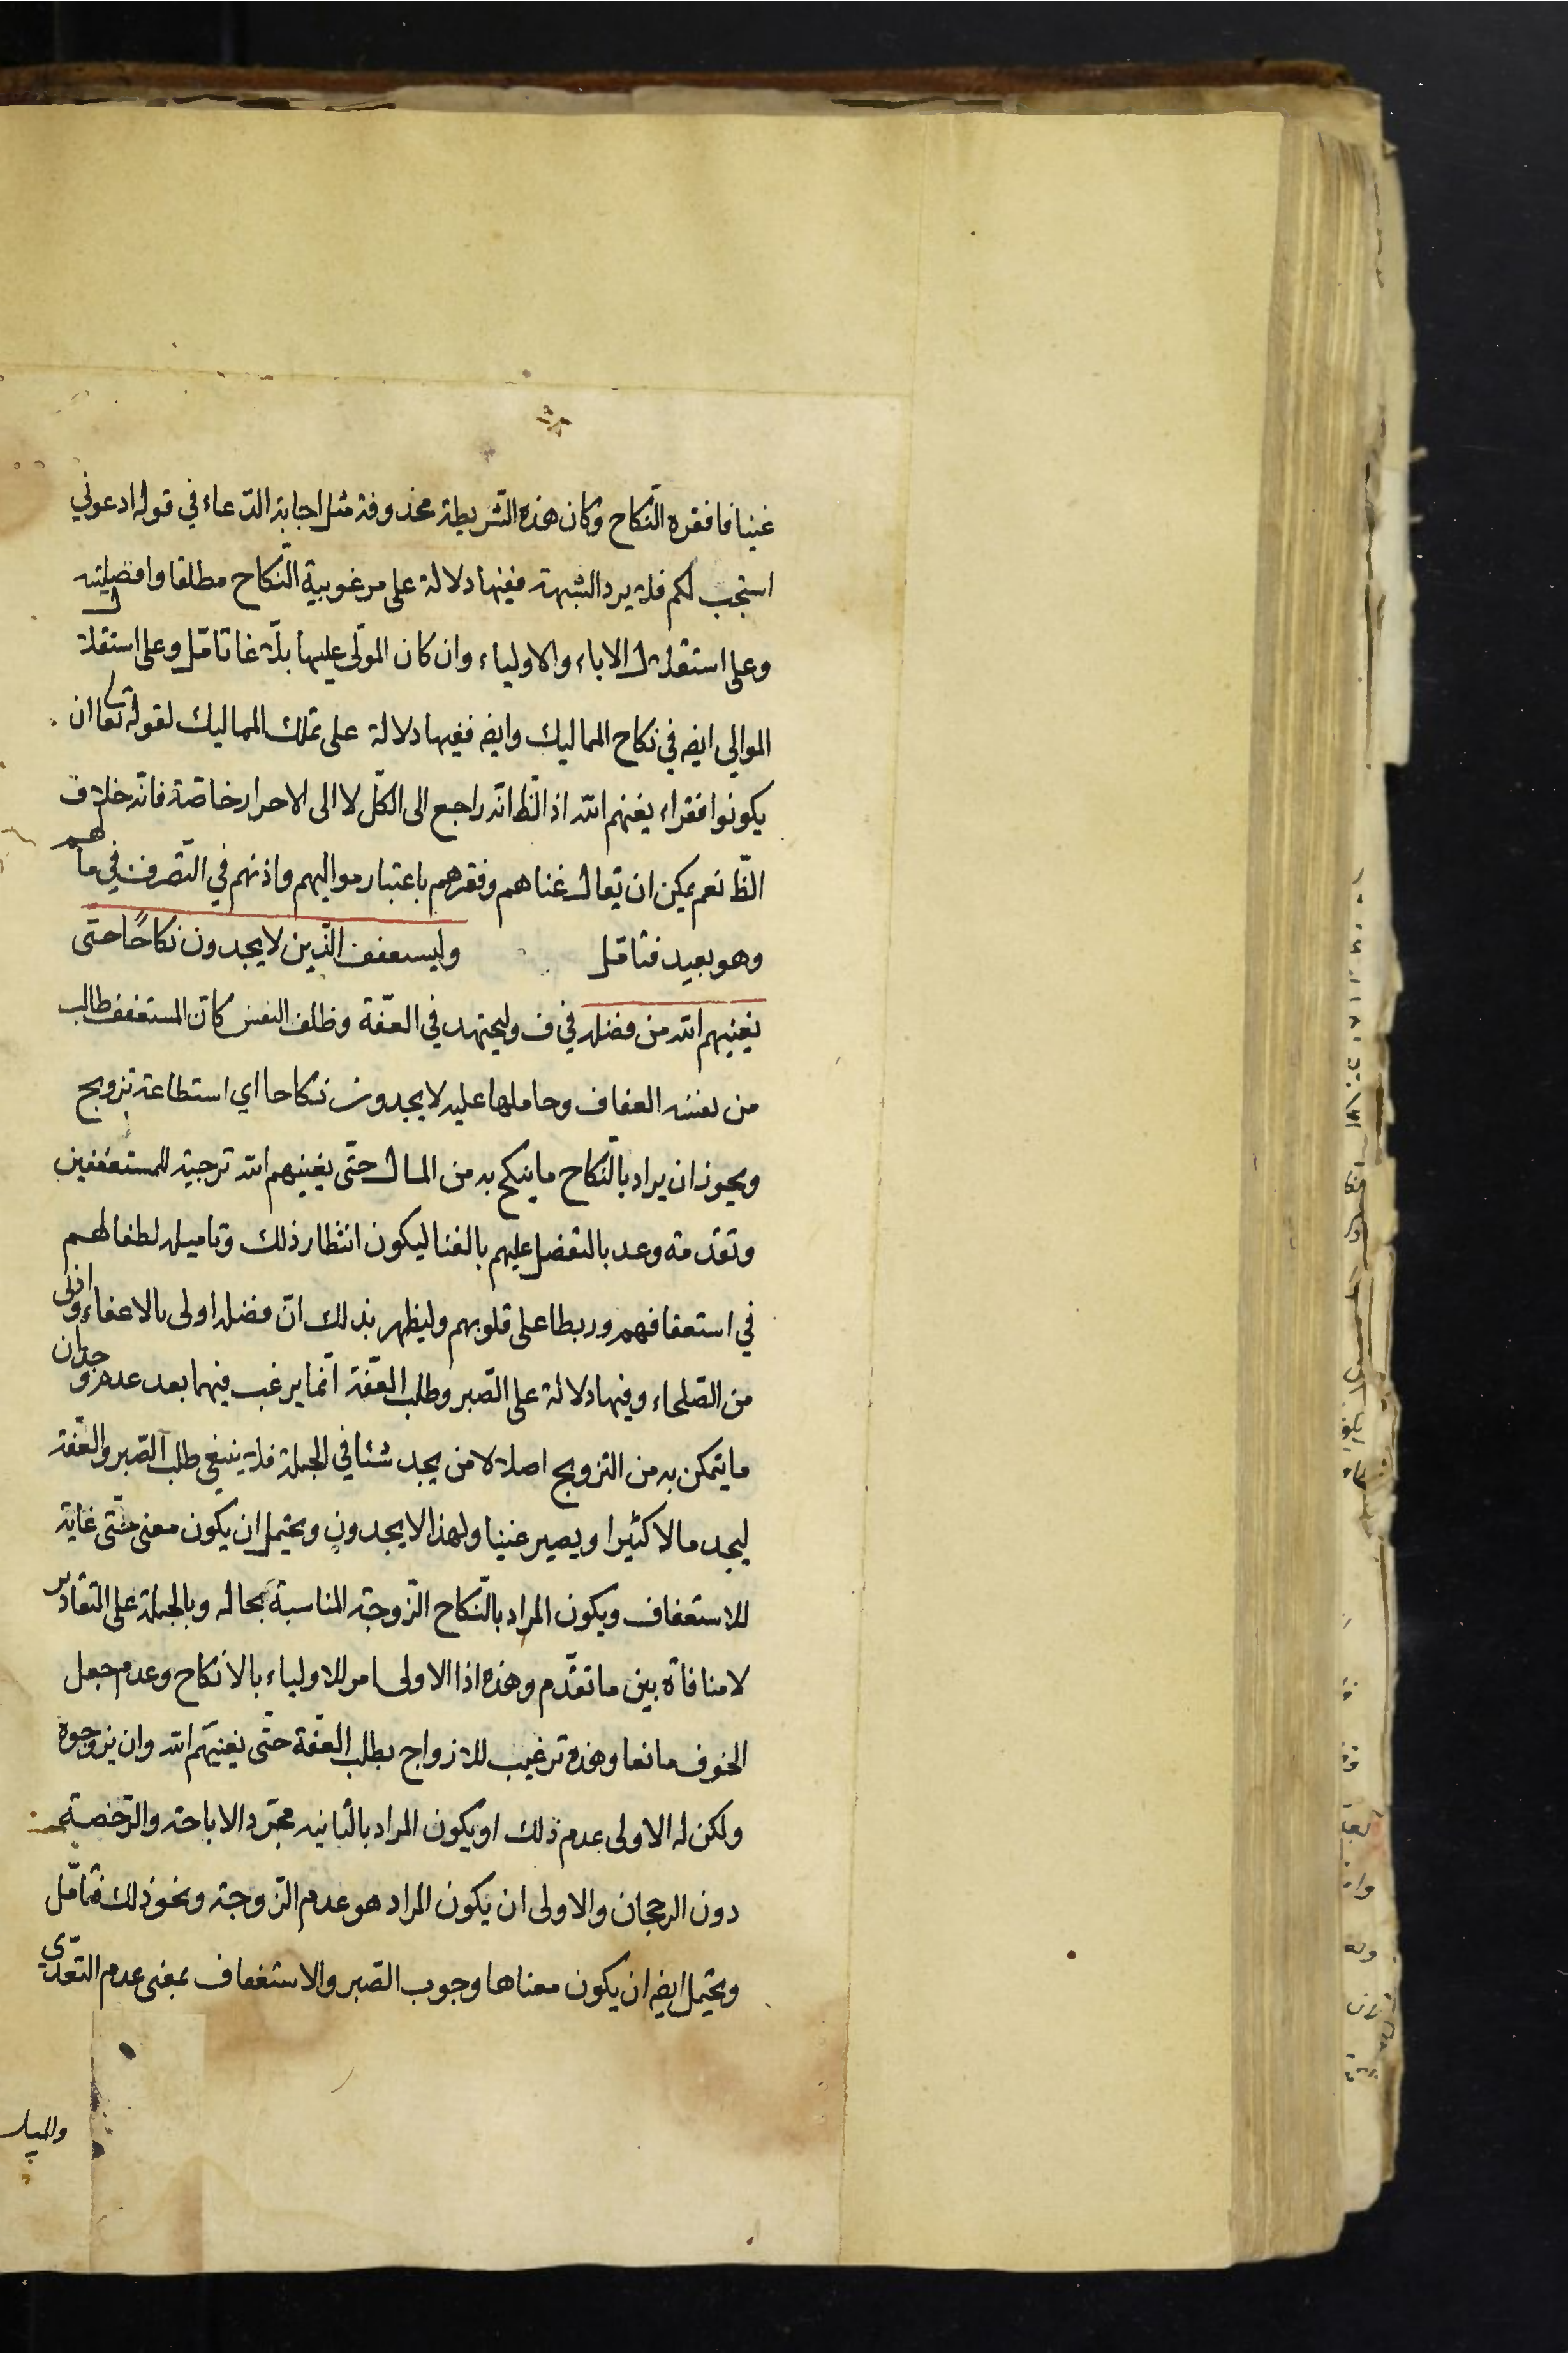 غنيا فافقره النّكاح وكان هذه الشّريطة محذوفة مثل اجابة الدّعاء في قوله ادعوني
استجب لكم فلا يرد الشبهة ففيها دلالة على مرغوبية النّكاح مطلقا وافضليته
وعلى استقلال الاباء والاولياء وان كان المولّى عليها بالغا تامّل وعلى استقلال
الموالي ايضه في نكاح المماليك وايضه ففيها دلالة على تملك المماليك لقوله تعا ان
يكونوا فقراء يغنهم الله اذ الظ انّه راجع الى الكلّ لا الى الاحرار خاصّة فانّه خلاف
الظّ نعم يمكن ان يقال غناهم وفقرهم باعتبار مواليهم واذنهم في التّصرف في مالهم
وهو بعيد فتامّل وليستعفف الّذين لا يجدون نكاحًا حتّى
يغنيهم الله من فضله في ف وليجتهد في العفّة وظلف النفس كانّ المستعفف طالب
من نفسه العفاف وحاملها عليه لا يجدون نكاحا اي استطاعة تزويج
ويجوز ان يراد بالنّكاح ما ينكح به من المال حتّى يغنيهم الله ترجية للمستعففين
وتقدمة وعد بالتفضل عليهم بالغنا ليكون انتظار ذلك وتاميله لطفا لهم
في استعفافهم وربطا على قلوبهم وليظهر بذلك انّ فضله اولى بالاعفاء وادنى
من الصّلحاء وفيها دلالة على الصّبر وطلب العفّة انّما يرغب فيهما بعد عدم وجدان
ما يتمكن به من التزويج اصلا لا من يجد شئا في الجملة فلا ينبغي طلب الصّبر والعفّة
ليجد مالا كثيرا ويصير غنيا ولهذا لا يجدون ويحتمل ان يكون معنى حتّى غاية
للاستعفاف ويكون المراد بالنّكاح الزّوجة المناسبة بحاله وبالجملة على التقادير
لا منافاة بين ما تقدّم وهذه اذا الاولى امر للاولياء بالانكاح وعدم جعل
الخوف مانعا وهذه ترغيب للازواج بطلب العفّة حتّى يغنيهم الله وان يزوجوه
ولكن له الاولى عدم ذلك او يكون المراد بالثانية مجرّد الاباحة والرّخصة
دون الرجحان والاولى ان يكون المراد هو عدم الزّوجة ونحو ذلك فتامّل
ويحتمل ايضه ان يكون معناها وجوب الصّبر والاستعفاف بمعنى عدم التعدّى
والميل